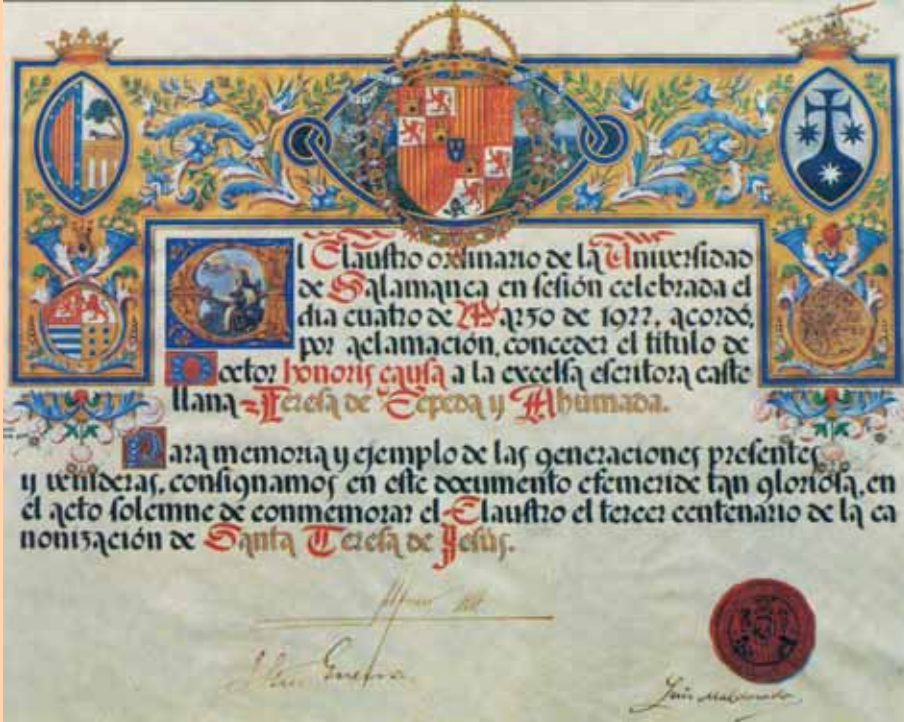 El Claustro ordinario de la Universidad
de Salamanca en sesión celebrada el
dia cuatro de Marzo de 1922, acordó,
por aclamación, conceder el titulo de
Doctor honoris causa a la excelsa escritora caste
llana = Teresa de Cepeda y Ahumada.
Para memoria y ejemplo de las generaciones presentes
y venideras, consignamos en este documento efemeride tan gloriosa, en
el acto solemne de conmemorar el Claustro el tercer centenario de la ca
nonización de Santa Teresa de Jesús.
Alfonso XIII
Luis Maldonado